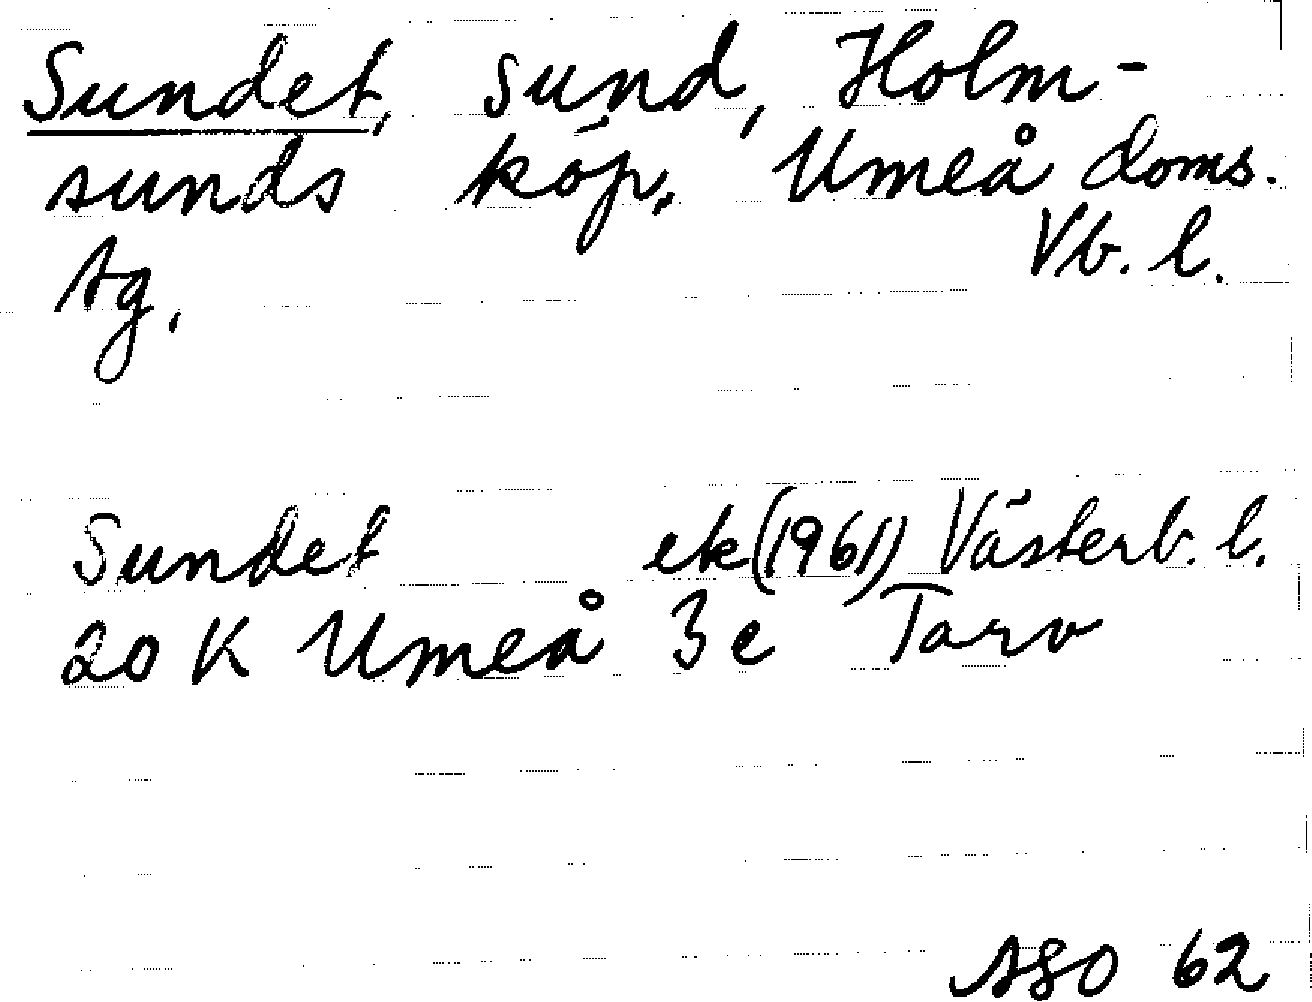 Sundet, sund, Holm-
sunds köp. Umeå doms.
tg. Vb. l.
Sundet ek (1961) Västerb. l.
20 K Umeå 3 e Tarv
ASO 62